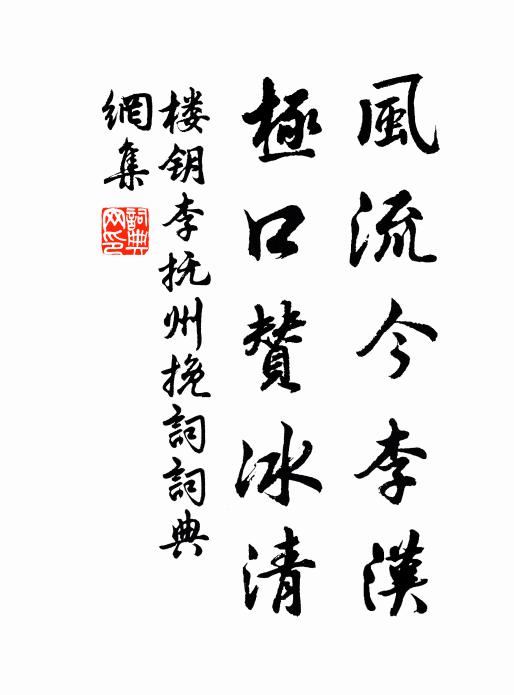 風流今李漢
極口贊冰清
楼钥李抚州挽詞詞典
網集
詞典
网印